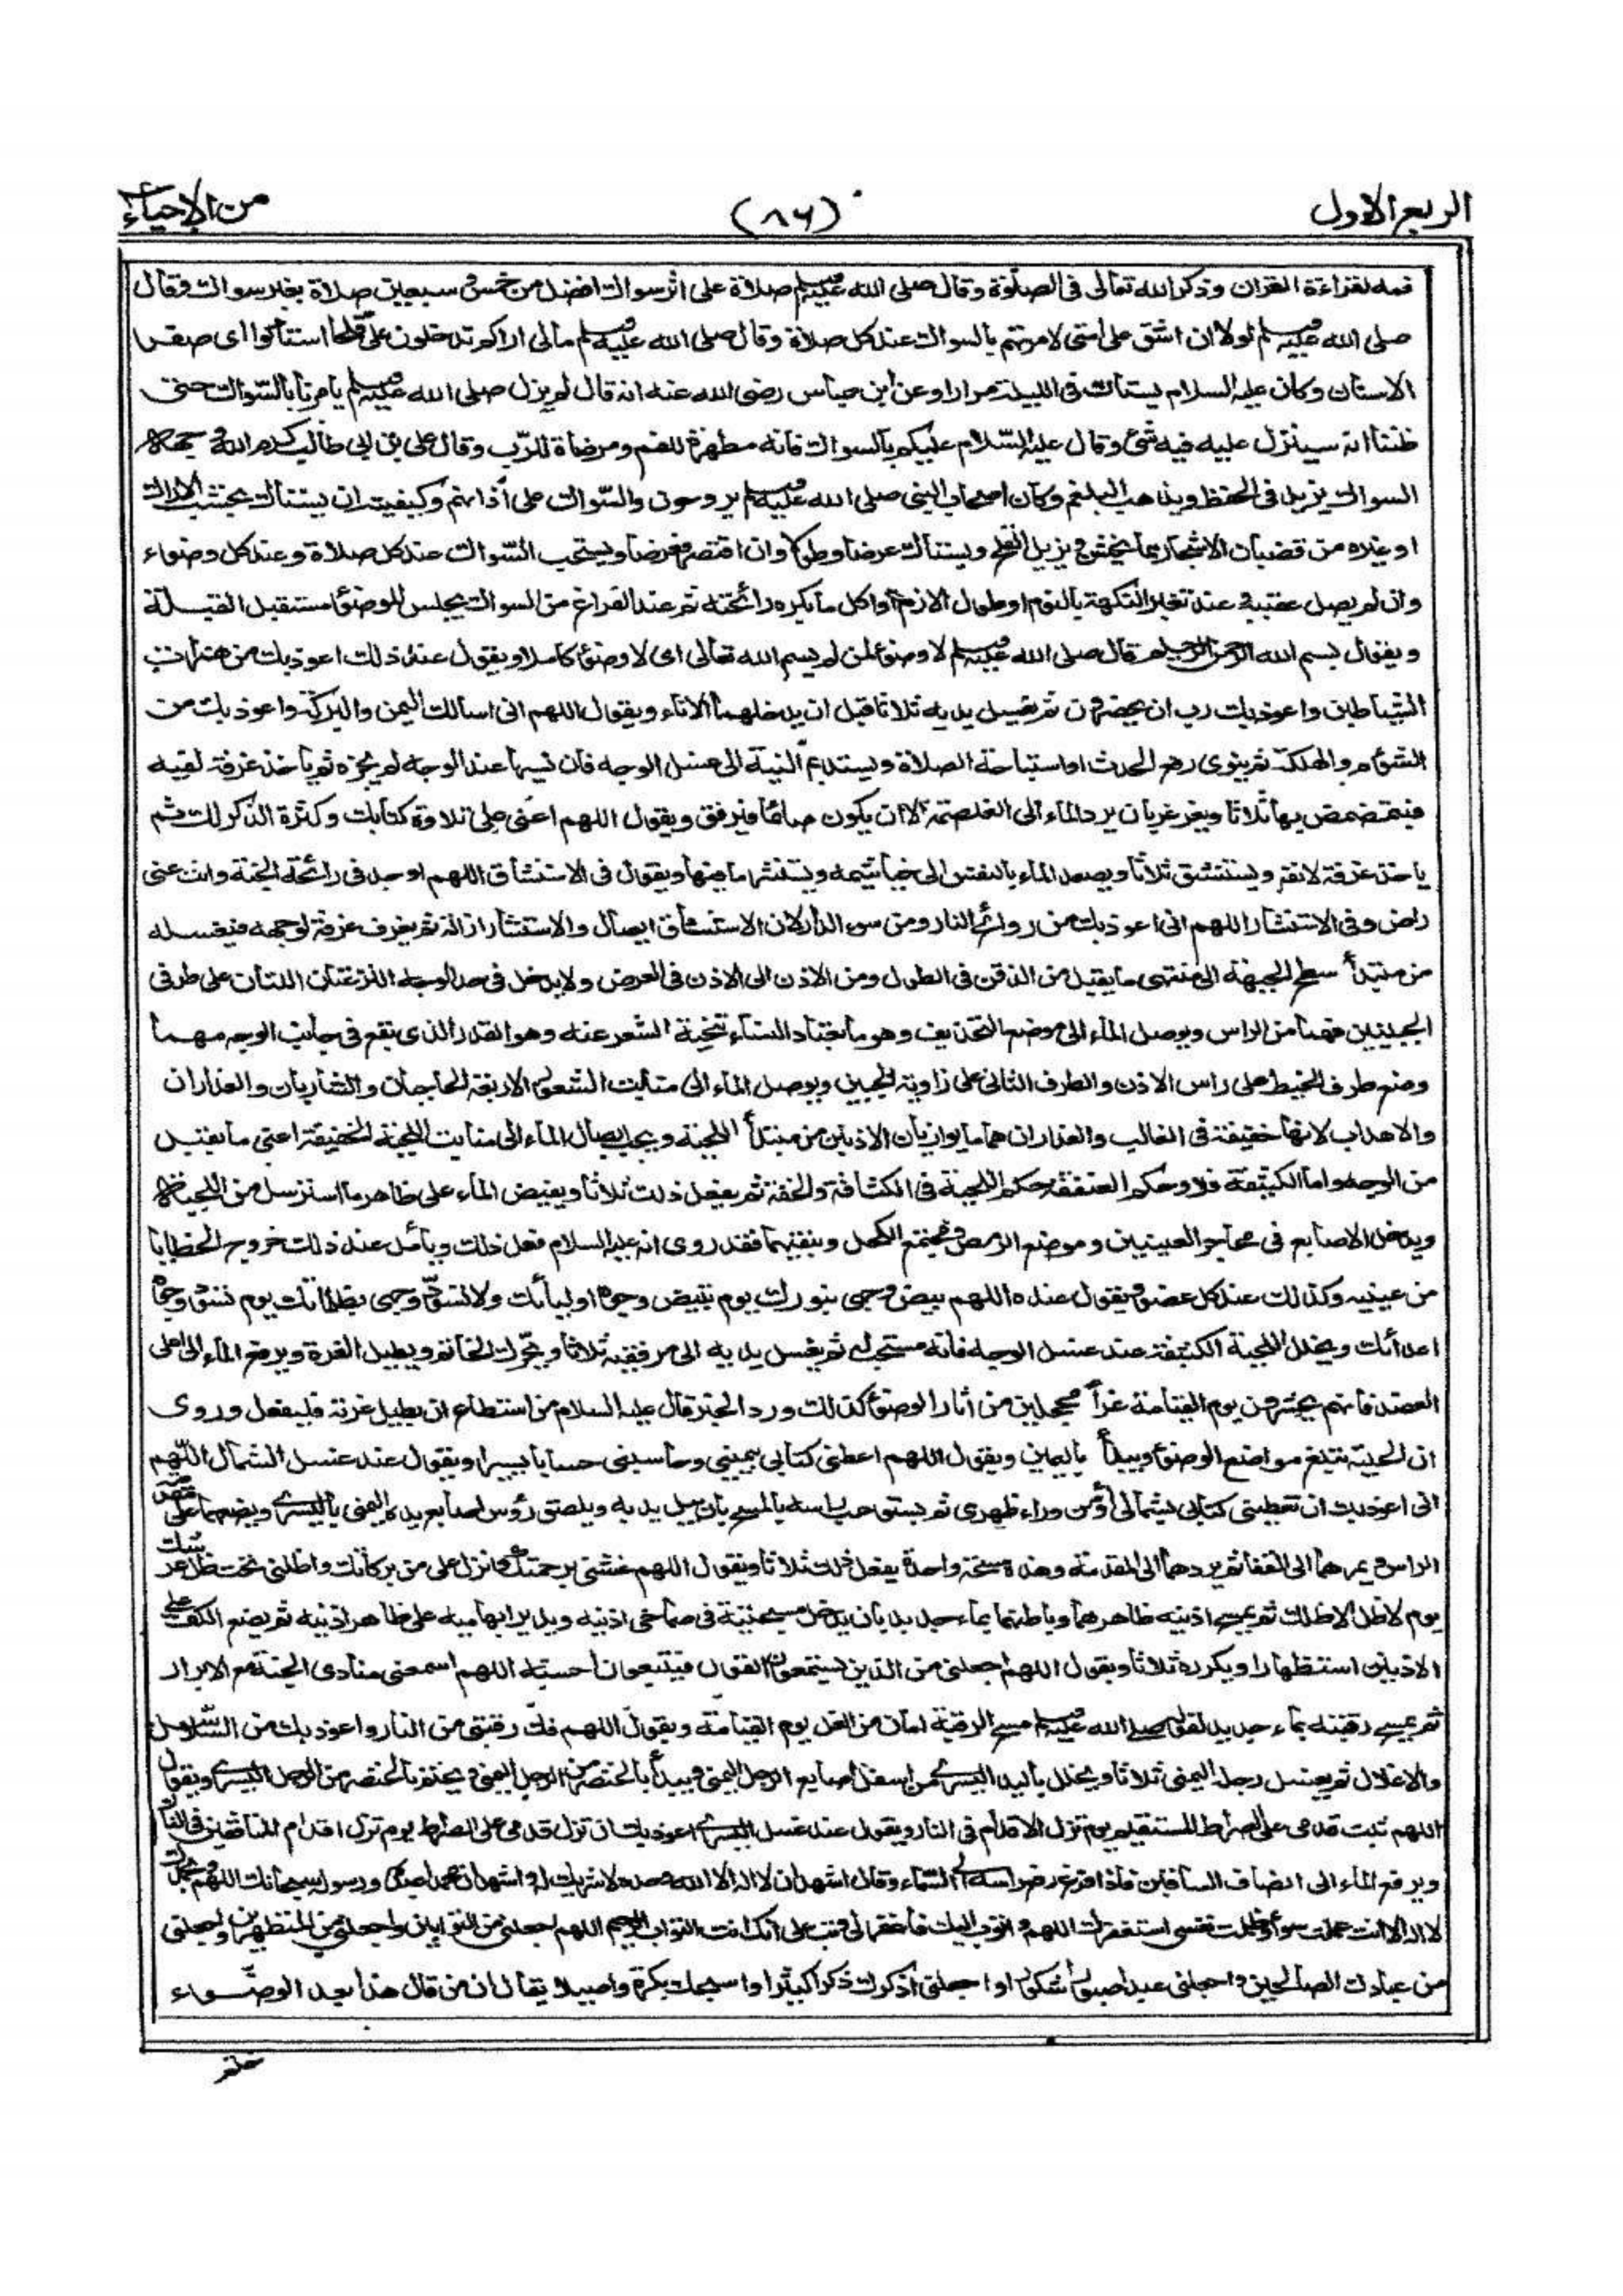 الربع الاول
(٨٦)
من الإحياء
فمه لقراءة القران وذكر الله تعالى في الصلوة وقال صلى الله عليه وسلم صلاة على اثر سواك افضل من خمس و سبعين صلاة بغير سواك وقال
صلى الله عليه وسلم لولا ان اشق على امتى لامرتهم بالسواك عند كل صلاة وقال صلى الله عليه وسلم مالى اراكم تدخلون على قلحا استاكوا اى صفر
الاسنان وكان عليه السلام يستاك فى الليلة مرارا وعن ابن عباس رضى الله عنه انه قال لم يزل صلى الله عليه وسلم يامرنا بالسّواك حتى
ظننا انه سينزل عليه فيه شئ وقال عليه السّلام عليكم بالسواك فانه مطهرة للفم ومرضاة للرّب وقال على بن ابى طالب كرم الله وجهه
السواك يزيد فى الحفظ ويذهب البلغم وكان اصحاب النبى صلى الله عليه وسلم يروحون والسّواك على أذانهم وكيفيته ان يستاك بخشب الاراك
او غيره من قضبان الاشجار مما يخشن ويزيل القلح ويستاك عرضا وطولا وان اقتصر فعرضا ويستحب السّواك عند كل صلاة وعند كل وضوء
وان لم يصل عقيبه وعند تغير النكهة بالنوم او طول الازم او اكل ما يكره رائحته ثم عند الفراغ من السواك يجلس للوضوء مستقبل القبلة
ويقول بسم الله الرحمن الرحيم قال صلى الله عليه وسلم لا وضوء لمن لم يسم الله تعالى اى لا وضوء كاملا ويقول عند ذلك اعوذ بك من همزات
الشياطين واعوذ بك رب ان يحضرون ثم يغسل يديه ثلاثا قبل ان يدخلهما الاناء ويقول اللهم انى اسالك اليمن والبركة واعوذ بك من
الشؤم والهلكة ثم ينوى رفع الحدث او استباحة الصلاة ويستديم النية الى غسل الوجه فان نسيها عند الوجه لم يجزه ثم ياخذ غرفة لفيه
فيتمضمض بها ثلاثا ويغرغر بان يرد الماء الى الغلصمة الا ان يكون صائما فيرفق ويقول اللهم اعنى على تلاوة كتابك وكثرة الذكر لك ثم
ياخذ غرفة لانفه ويستنشق ثلاثا ويصعد الماء بالنفس الى خياشيمه ويستنثر ما فيها ويقول فى الاستنشاق اللهم اوجد فى رائحة الجنة وانت عنى
راض وفى الاستنثار اللهم انى اعوذ بك من روائح النار ومن سوء الدار لان الاستنشاق ايصال والاستنثار ازالة ثم يغرف غرفة لوجهه فيغسله
من مبتدأ سطح الجبهة الى منتهى ما يقبل من الذقن فى الطول ومن الاذن الى الاذن فى العرض ولا يدخل فى حد الوجه النزعتان اللتان على طرفى
الجبينين فهما من الراس ويوصل الماء الى موضع التحذيف وهو ما يعتاد النساء تنحية الشعر عنه وهو القدر الذى يقع فى جانب الوجه مهما
وضع طرف الخيط على راس الاذن والطرف الثانى على زاوية الجبين ويوصل الماء الى منابت الشعور الاربعة الحاجبان والشاربان والعذاران
والاهداب لانها خفيفة فى الغالب والعذاران هما ما يوازيان الاذنين من مبتدأ اللحية ويجب ايصال الماء الى منابت اللحية الخفيفة اعنى ما يقبل
من الوجه واما الكثيفة فلا وحكم العنفقة حكم اللحية فى الكثافة والخفة ثم يفعل ذلك ثلاثا ويفيض الماء على ظاهر ما استرسل من اللحية
ويدخل الاصابع فى محاجر العينين وموضع الرمص ومجتمع الكحل وينقيهما فقد روى انه عليه السلام فعل ذلك ويأمل عند ذلك خروج الخطايا
من عينيه وكذلك عند كل عضو ويقول عنده اللهم بيض وجهى بنورك يوم تبيض وجوه اوليائك ولا تسوّد وجهى بظلماتك يوم تسود وجوه
اعدائك ويخلل اللحية الكثيفة عند غسل الوجه فانه مستحب ثم يغسل يديه الى مرفقيه ثلاثا ويحرك الخاتم ويطيل الغرة ويرفع الماء الى اعلى
العضد فانهم يحشرون يوم القيامة غراً محجلين من اثار الوضوء كذلك ورد الخبر قال عليه السلام من استطاع ان يطيل غرته فليفعل وروى
ان الحلية تبلغ مواضع الوضوء ويبدأ باليمين ويقول اللهم اعطنى كتابى بيمينى وحاسبنى حسابا يسيرا ويقول عند غسل الشمال اللّهم
انى اعوذ بك ان تعطينى كتابى بشمالى أو من وراء ظهرى ثم يستوعب راسه بالمسح بان يبل يديه ويلصق رؤس اصابع يده اليمنى باليسرى ويضعهما على مقدمة
الراس ويمرهما الى القفا ثم يردهما الى المقدمة وهذه مسحة واحدة يفعل ذلك ثلاثا ويقول اللهم غشنى برحمتك وانزل على من بركاتك واظلنى تحت ظل عرشك
يوم لا ظل الا ظلك ثم يمسح اذنيه ظاهرهما وباطنهما بماء جديد بان يدخل مسبحتيه فى صماخى اذنيه ويدير ابهاميه على ظاهر اذنيه ثم يضع الكف على
الاذنين استظهارا ويكرره ثلاثا ويقول اللهم اجعلنى من الذين يستمعون القول فيتبعون احسنه اللهم اسمعنى منادى الجنة مع الابرار
ثم يمسح رقبته بماء جديد لقوله صلى الله عليه وسلم مسح الرقبة امان من الغل يوم القيامة ويقول اللهم فك رقبتى من النار واعوذ بك من السّلاسل
والاغلال ثم يغسل رجله اليمنى ثلاثا ويخلل باليد اليسرى من اسفل اصابع الرجل اليمنى ويبدأ بالخنصر من الرجل اليمنى ويختم بالخنصر من الرجل اليسرى ويقول
اللهم ثبت قدمى على الصراط المستقيم يوم تزل الاقدام فى النار ويقول عند غسل اليسرى اعوذ بك ان تزل قدمى على الصراط يوم تزل اقدام المنافقين فى النار
ويرفع الماء الى انصاف الساقين فاذا فرغ رفع راسه الى السّماء وقال اشهد ان لا اله الا الله وحده لا شريك له واشهد ان محمدا عبده ورسوله سبحانك اللهم وبحمدك
لا اله الا انت عملت سوأ وظلمت نفسى استغفرك اللهم و اتوب اليك فاغفر لى وتب على انك انت التواب الرحيم اللهم اجعلنى من التوابين واجعلنى من المتطهرين واجعلنى
من عبادك الصالحين واجعلنى عبدا صبورا شكورا واجعلنى أذكرك ذكرا كثيرا واسبحك بكرة واصيلا يقال ان من قال هذا بعد الوضّوء
ختم